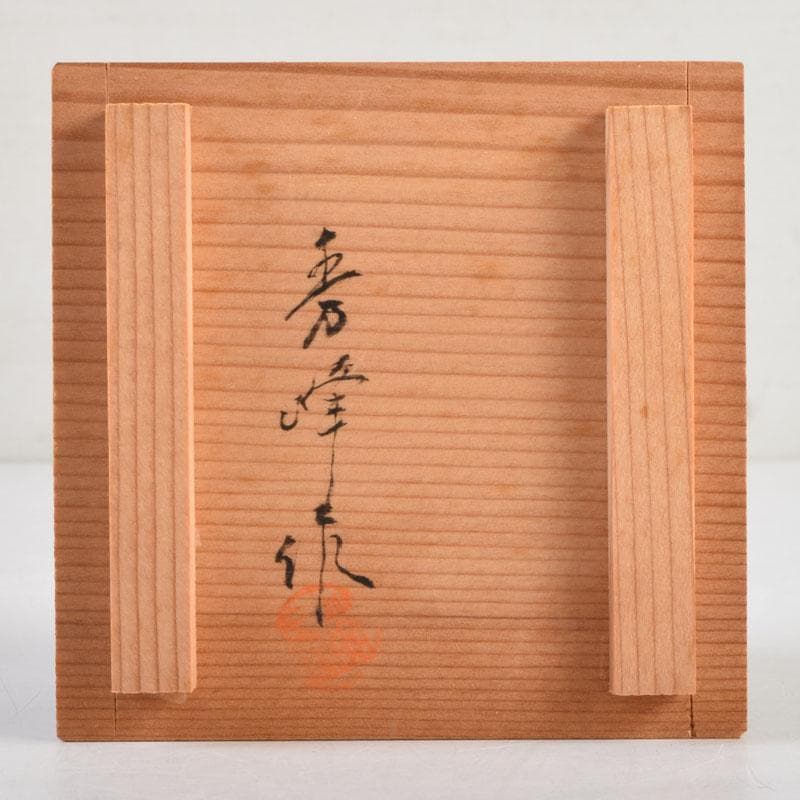 秀峰作